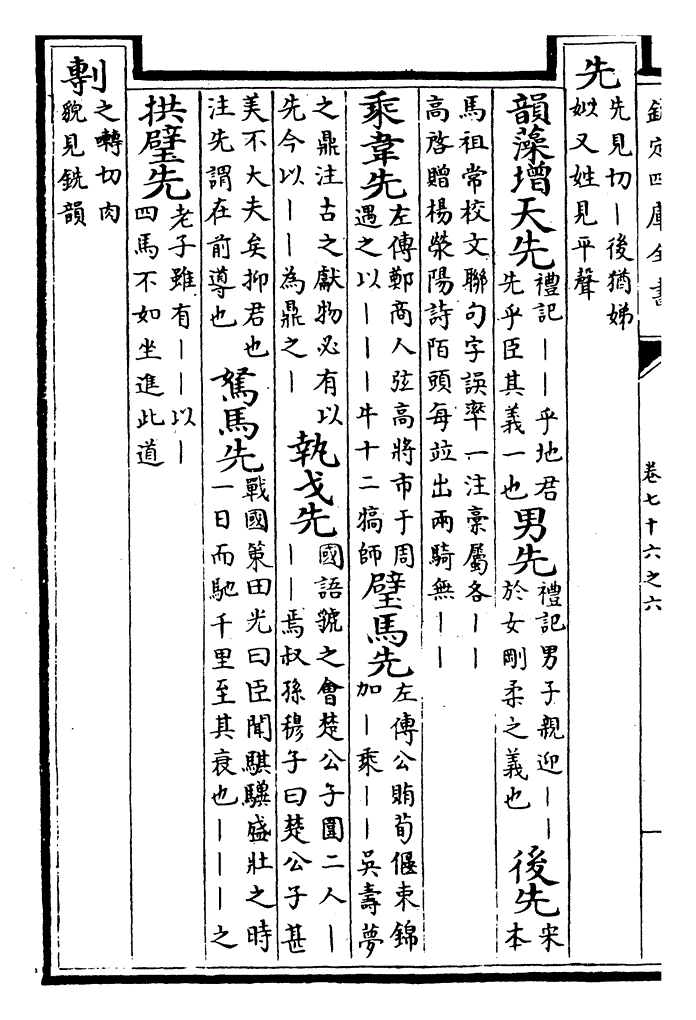 欽定四庫全書
卷七十六之六
先
先見切｜後猶娣
姒又姓見平聲
韻藻增天先
禮記｜｜乎地君
先乎臣其義一也
男先
禮記男子親迎｜｜
於女剛柔之義也
後先
宋
本
馬祖常校文聯句字誤率一注橐屬各｜｜
高啓贈楊滎陽詩陌頭每竝出兩騎無｜｜
乘韋先
左傳鄭商人弦高將市于周
遇之以｜｜｜牛十二犒師
璧馬先
左傳公賄荀偃束錦
加｜乘｜｜吳壽夢
之鼎注古之獻物必有以
先今以｜｜為鼎之｜
執戈先
國語虢之會楚公子圍二人｜
｜｜焉叔孫穆子曰楚公子甚
美不大夫矣抑君也
注先謂在前導也
駑馬先
戰國策田光曰臣聞騏驥盛壯之時
一日而馳千里至其衰也｜｜｜之
拱璧先
老子雖有｜｜以｜
四馬不如坐進此道
剸
之囀切肉
貌見銑韻